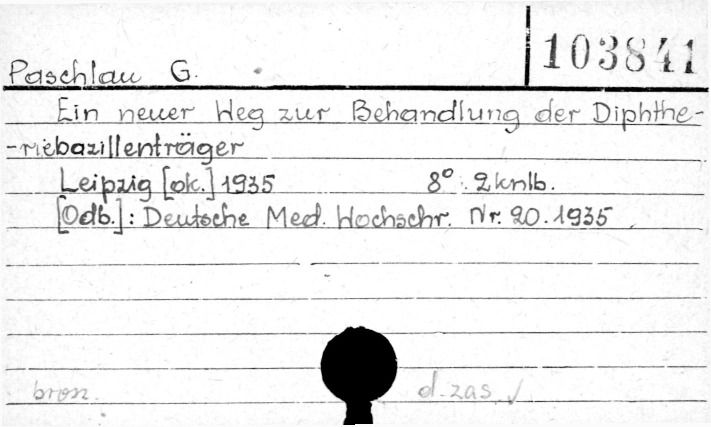 103841
Paschlau G.
Ein neuer Weg zur Behandlung der Diphthe-
-riebazillenträger
Leipzig [ok.] 1935 8° 2 knlb.
[Odb.]: Deutsche Med. Wochschr. Nr. 20. 1935
bron. d. zas. ✓